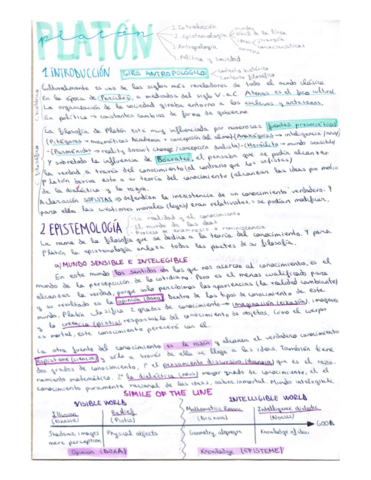 PLATÓN
platón
1. Introducción
2. Epistemología
3. Antropología
4. Política y sociedad
1. INTRODUCCIÓN
GIRO ANTROPOLÓGICO
contexto histórico
contexto filosófico
Culturalmente es uno de los siglos más reveladores de todo el mundo clásico
En la época de Pericles, a mediados del siglo V a.C Atenas es el foco cultural
La organización de la sociedad giraba entorno a los esclavos y
En política → constantes cambios de forma de gobierno
La filosofía de Platón está muy influenciada por numerosas fuentes presocráticas
(Pitágoras → matemáticas y concepción del alma) (Anaxágoras → inteligencia
(Parménides → (Heráclito → mundo sensible)
Y sobretodo la influencia de Sócrates, el pensaba que se podía alcanzar
la verdad a través del conocimiento (al contrario que los sofistas)
Platón deriva esto a su teoría del conocimiento (alcanzar las ideas por medio
de la dialéctica y la
A la razón SOFISTAS → defendían la inexistencia de un conocimiento verdadero. Y
para ellos las cuestiones morales (leyes) eran relativas, se podían modificar,
2. EPISTEMOLOGÍA
la realidad y el conocimiento
El mundo de las ideas
La rama de la filosofía que se dedica a la teoría del conocimiento. Y para
Platón, la epistemología enlaza todas las partes de su filosofía.
a) MUNDO SENSIBLE E INTELEGIBLE
En este mundo los sentidos son los que nos alertan al conocimiento, es el
mundo de la percepción de lo cotidiano. Pero es el menos cualificado para
alcanzar la verdad, porque solo percibimos las apariencias (la realidad cambiante)
y su resultado es la opinión (doxa). Dentro de los tipos de conocimiento de este
mundo, Platón clasifica 2 grados de conocimiento → imaginación (eikasia), imágenes
y la creencia (pistis) responsable del conocimiento de objetos, como el cuerpo
es mortal, este conocimiento perecerá con él.
La otra fuente del conocimiento es la razón y alcanza el verdadero conocimiento
(episteme/ciencia) y sólo a través de ella se llega a las ideas. También tiene
dos grados de conocimiento, 1º el pensamiento discursivo (dianoia) que es el razo-
namiento matemático 2º la dialéctica (nous) mayor grado de conocimiento, es el
conocimiento puramente racional de las ideas, saber inmortal. Mundo inteligible
SIMILE OF THE LINE
VISIBLE WORLD
INTELLIGIBLE WORLD
Illusion (Eikasia)
Belief (Pistis)
Mathematics Reason (Dianoia)
Intelligence dialectic (Noesis)
GOOD
Shadows, images mere perception
Physical objects
Geometry, algebra
Knowledge of ideas
Opinion (DOXA)
Knowledge (EPISTEME)